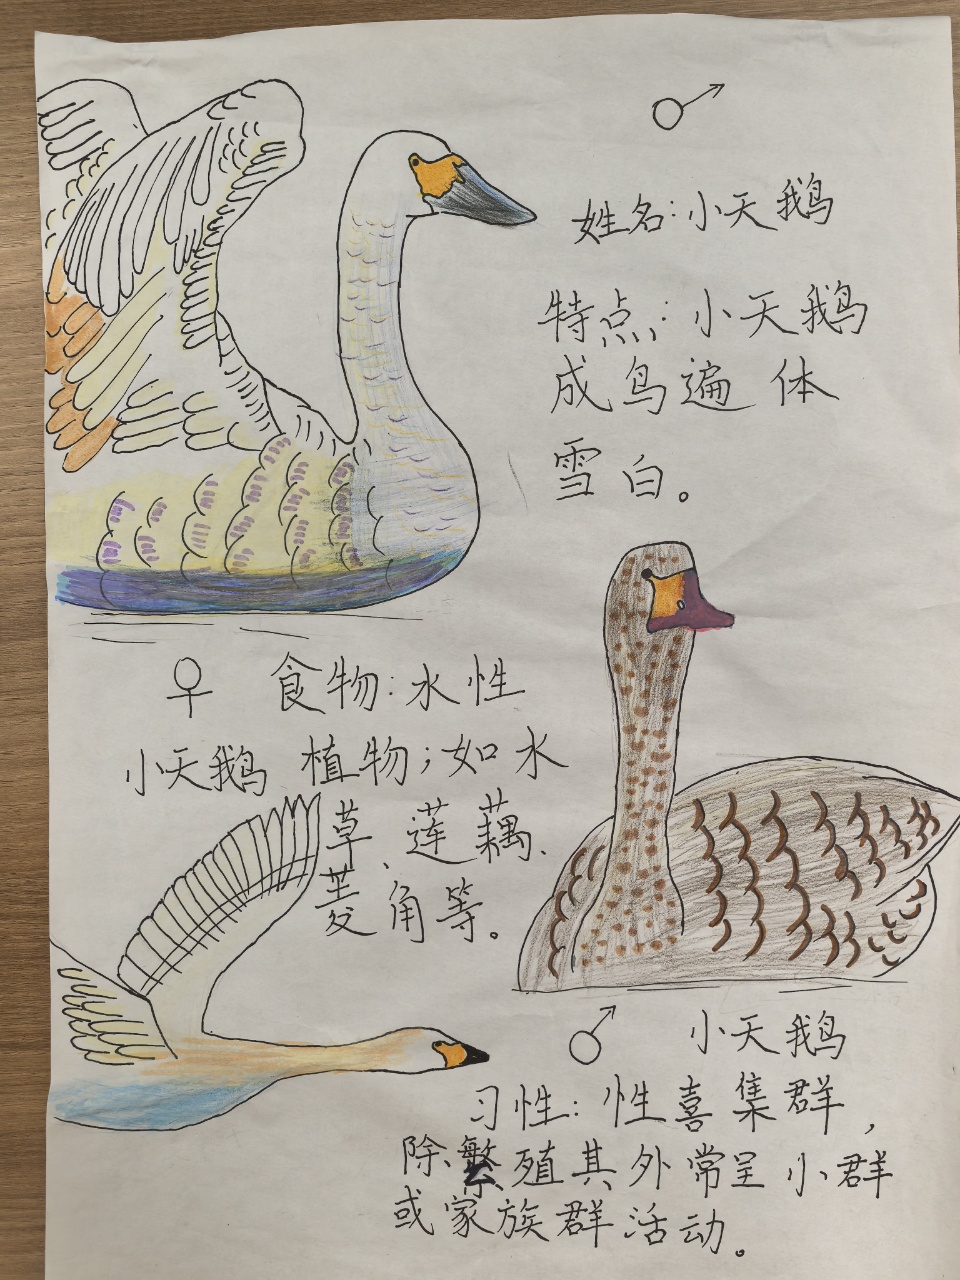 ♂
姓名:小天鹅
特点:小天鹅
成鸟遍体
雪白。
♀ 食物:水性
小天鹅 植物;如水
草、莲藕、
菱角等。
♂ 小天鹅
习性:性喜集群,
除繁殖其外常呈小群
或家族群活动。